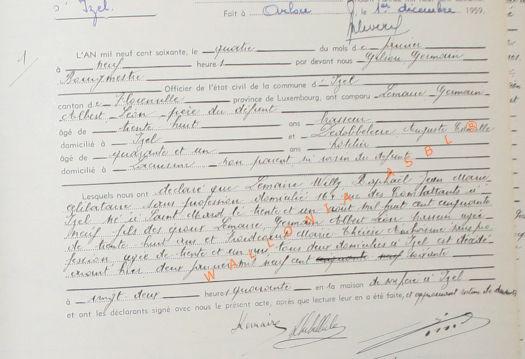 d' Izel.
Fait à Arlon, le 1er décembre 1959.
1/
L'AN mil neuf cent soixante, le quatre du mois de janvier
à neuf heures par devant nous Gilson Germain
Bourgmestre Officier de l'état civil de la commune d' Izel
canton de Florenville province de Luxembourg, ont comparu Lemaire Germain
Albert Léon père du défunt
âgé de trente huit ans brasseur
domicilié à Izel et Auguste
âgé de quarante et un ans hôtelier
domicilié à non parent ni voisin du défunt
Lesquels nous ont déclaré que Lemaire Willy Raphaël Jean Marie
Célibataire sans profession domicilié rue des Combattants à
Izel né à Saint Mard le trente et un août mil huit cent cinquante
neuf fils des époux Lemaire Germain Albert Léon brasseur agé
de trente huit ans et Marie Thérèse sans pro-
fession agée de trente et un ans tous deux domiciliés à Izel est décédé
hier deux janvier mil neuf cent cinquante neuf soixante
à vingt deux heures quarante en la maison de son père à Izel
et ont les déclarants signé avec nous le présent acte, après que lecture leur en a été faite, et
Lemaire
WALLONIA ASBL ©